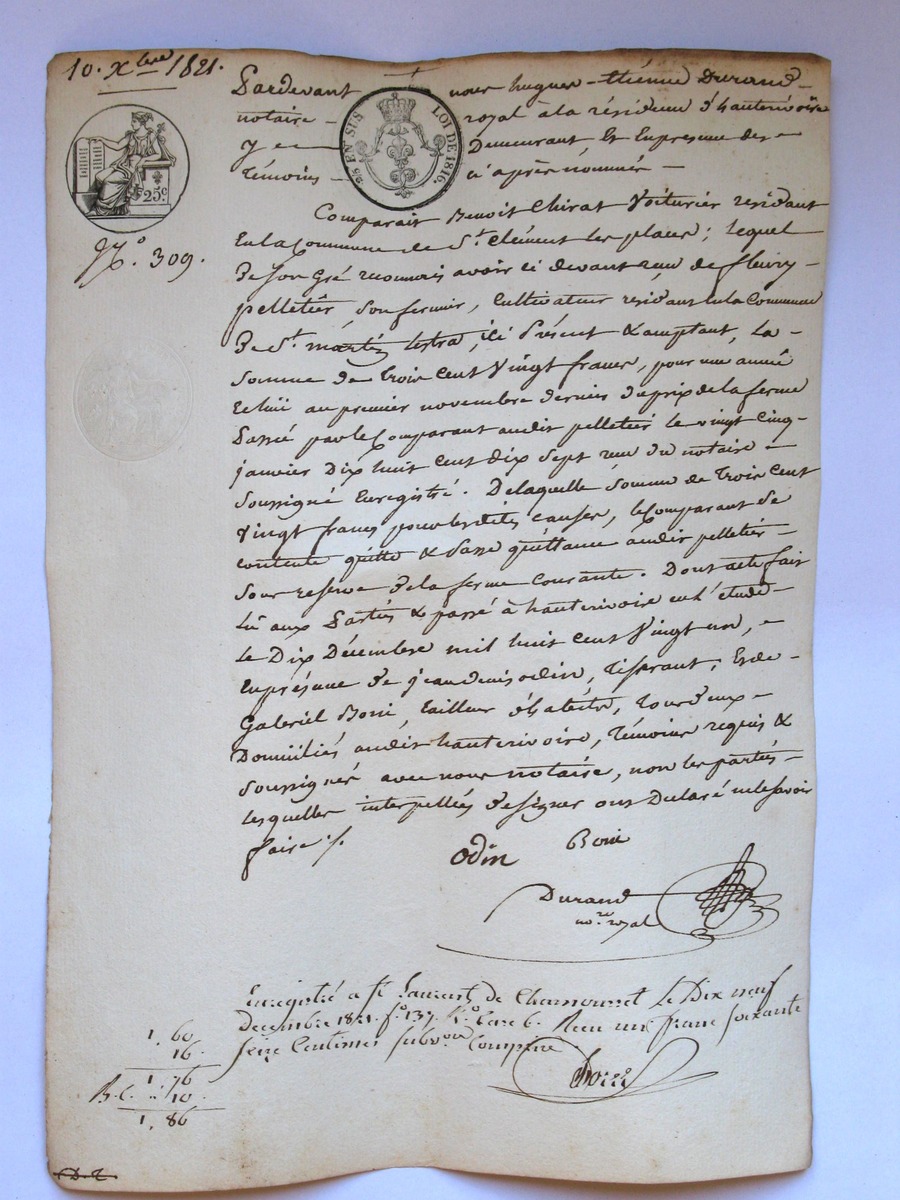 10. Xbre 1821.
Pardevant nous hugues-étienne Durand
notaire royal à la résidence d'hauterivoire
y Demeurant Et En présence des
témoins ci après nommés
25 EN SUS
LOI DE 1816.
25c
No. 309.
Comparait Benoit Chirat Voiturier residant
En la Commune de St. Clément les places; lequel
De Son Gré reconnais avoir ci devant reçu de fleury
pelletier, Son fermier, Cultivateur residant en la Commune
De St. martin lestra, ici Présent & acceptant, La
Somme de trois Cent Vingt francs, pour une année
Echüe au premier novembre dernier du prix de la ferme
Passé par le Comparant audit pelletier le vingt cinq
janvier Dix huit cent dix sept reçu du notaire
Soussigné Enregistré. De laquelle Somme de trois Cent
Vingt francs pour les dites causes, le Comparant Se
contente quitte & Passe quittance audit pelletier
Sous reserve de la ferme Courante. Dont acte fait
Lu aux Parties & passé à hauterivoire en l'étude
Le Dix Décembre mil huit cent Vingt un,
En présence de jean denis odin, tisserant, Et de
Gabriel Boni, tailleur d'habits, tous deux
Domiciliés audit hauterivoire, témoins requis &
Soussignés avec nous notaire, non les parties
lesquelles interpellées de signer ont Declaré ne le Savoir
faire ./.
odin Boni
Durand
nore. royal
Enregistré a St Laurent de Chamousset le Dix neuf
Decembre 1821. fo. 137. Ro. Case 6. Recu un franc soixante
Seize Centimes Subvon Comprise
1. 60
16.
1. 76
B.C. .. 10.
1. 86